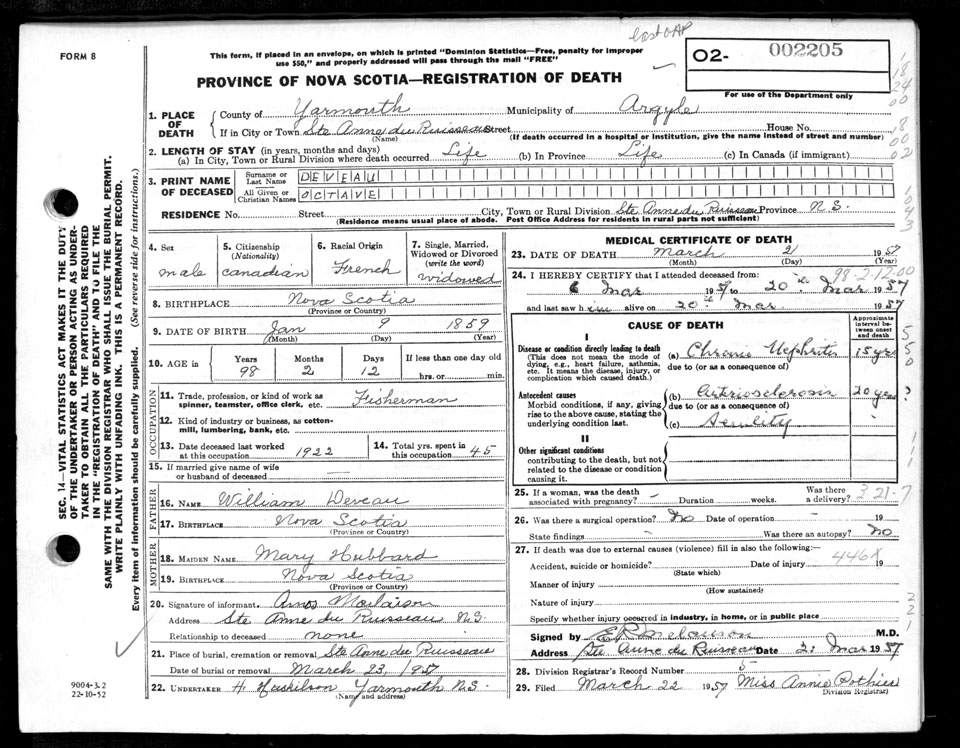 FORM 8
This form, if placed in an envelope, on which is printed "Dominion Statistics—Free, penalty for improper
use $50," and properly addressed will pass through the mail "FREE"
02- 002205
For use of the Department only
PROVINCE OF NOVA SCOTIA—REGISTRATION OF DEATH
1. PLACE OF DEATH
County of Yarmouth Municipality of Argyle
If in City or Town Ste Anne du Ruisseau Street House No.
(Name) (If death occurred in a hospital or institution, give the name instead of street and number)
2. LENGTH OF STAY (in years, months and days)
(a) In City, Town or Rural Division where death occurred Life (b) In Province Life (c) In Canada (if immigrant)
3. PRINT NAME OF DECEASED
Surname or Last Name DEVEAU
All Given or Christian Names OCTAVE
RESIDENCE No. Street City, Town or Rural Division Ste Anne du Ruisseau Province N.S.
(Residence means usual place of abode. Post Office Address for residents in rural parts not sufficient)
4. Sex male
5. Citizenship (Nationality) canadian
6. Racial Origin French
7. Single, Married, Widowed or Divorced (write the word) widowed
8. BIRTHPLACE Nova Scotia
(Province or Country)
9. DATE OF BIRTH Jan 9 1859
(Month) (Day) (Year)
10. AGE in Years 98 Months 2 Days 12 If less than one day old hrs. or min.
OCCUPATION
11. Trade, profession, or kind of work as spinner, teamster, office clerk, etc. Fisherman
12. Kind of industry or business, as cotton-mill, lumbering, bank, etc.
13. Date deceased last worked at this occupation 1922
14. Total yrs. spent in this occupation 45
15. If married give name of wife or husband of deceased —
FATHER
16. NAME William Deveau
17. BIRTHPLACE Nova Scotia
(Province or Country)
MOTHER
18. MAIDEN NAME Mary Hubbard
19. BIRTHPLACE Nova Scotia
(Province or Country)
20. Signature of informant. Amos
Address Ste Anne du Ruisseau N.S.
Relationship to deceased none
21. Place of burial, cremation or removal Ste Anne du Ruisseau
Date of burial or removal March 23, 1957
22. UNDERTAKER H. Yarmouth N.S.
(Name and address)
MEDICAL CERTIFICATE OF DEATH
23. DATE OF DEATH March 1957
(Month) (Day) (Year)
98-2-12-00
24. I HEREBY CERTIFY that I attended deceased from:
6 Mar 1957 to 20 Mar 1957
and last saw him alive on 20 Mar 1957
CAUSE OF DEATH
Approximate interval between onset and death
I
Disease or condition directly leading to death
(This does not mean the mode of dying, e.g., heart failure, asthenia, etc. It means the disease, injury, or complication which caused death.)
(a) Chronic Nephritis 15 yrs
due to (or as a consequence of)
Antecedent causes
Morbid conditions, if any, giving rise to the above cause, stating the underlying condition last.
(b) Arteriosclerosis 20 yrs
due to (or as a consequence of)
(c) Senility
II
Other significant conditions
contributing to the death, but not related to the disease or condition causing it.
25. If a woman, was the death associated with pregnancy? – Duration weeks. Was there a delivery?
26. Was there a surgical operation? No Date of operation – 19
State findings – Was there an autopsy? No
27. If death was due to external causes (violence) fill in also the following:—
446X
Accident, suicide or homicide? Date of injury 19
(State which)
Manner of injury
(How sustained)
Nature of injury
Specify whether injury occurred in industry, in home, or in public place
Signed by M.D.
Address Ste Anne du Ruisseau Date Mar 1957
28. Division Registrar's Record Number 5
29. Filed March 22 1957 Miss Annie Pothier
Division Registrar
SEC. 14—VITAL STATISTICS ACT MAKES IT THE DUTY
OF THE UNDERTAKER OR PERSON ACTING AS UNDER-
TAKER TO OBTAIN ALL THE PARTICULARS REQUIRED
IN THE "REGISTRATION OF DEATH" AND TO FILE THE
SAME WITH THE DIVISION REGISTRAR WHO SHALL ISSUE THE BURIAL PERMIT.
WRITE PLAINLY WITH UNFADING INK. THIS IS A PERMANENT RECORD.
Every item of information should be carefully supplied. (See reverse side for instructions.)
9004-3.2
22-10-52